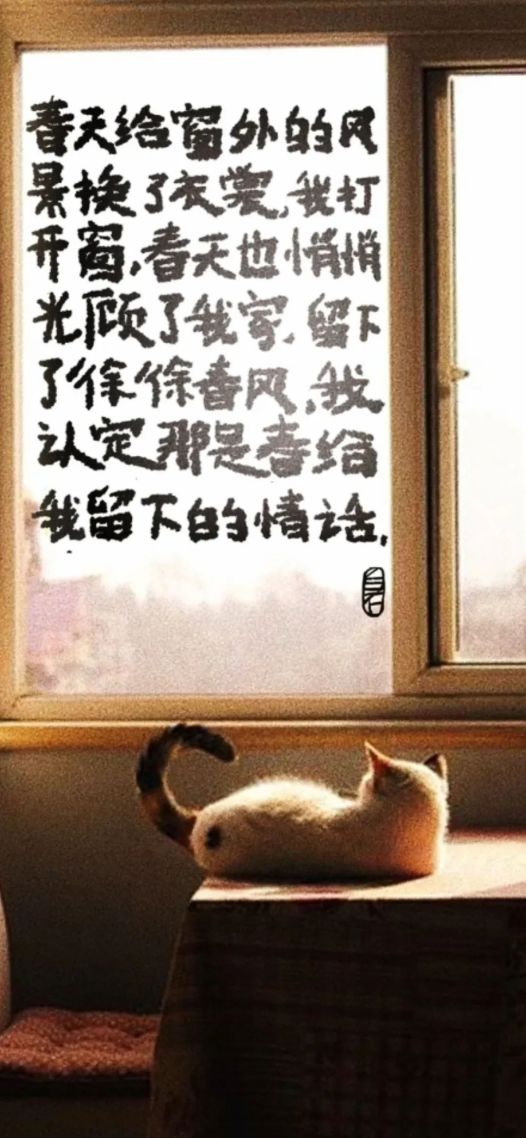 春天给窗外的风
景换了衣裳,我打
开窗,春天也悄悄
光顾了我家,留下
了徐徐春风,我
认定那是春给
我留下的情话,